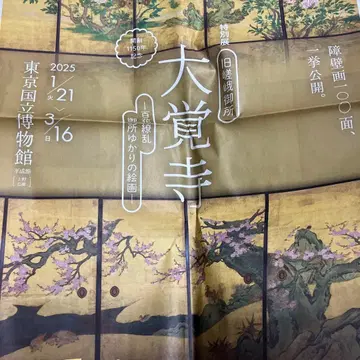 障壁画一〇〇面、
一挙公開。
開創
1150年
記念
特別展
旧嵯峨御所
大覚寺
―百花繚乱
御所ゆかりの絵画―
2025
1/21火
3/16日
東京国立博物館
平成館
上野公園